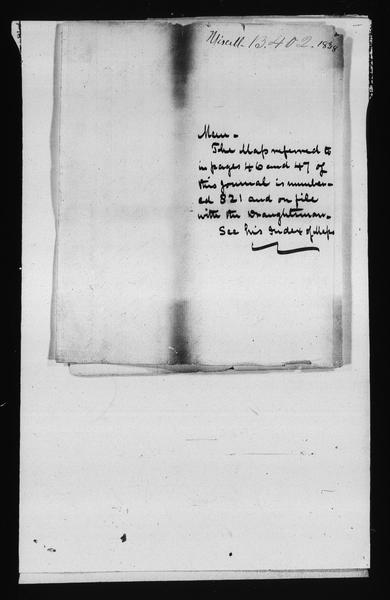 Miscell. 13.402. 1838
Mem -
The Map referred to
in pages 46 and 47 of
this journal is number-
ed 821 and on file
with the Draughtsman.
See his Index of Maps